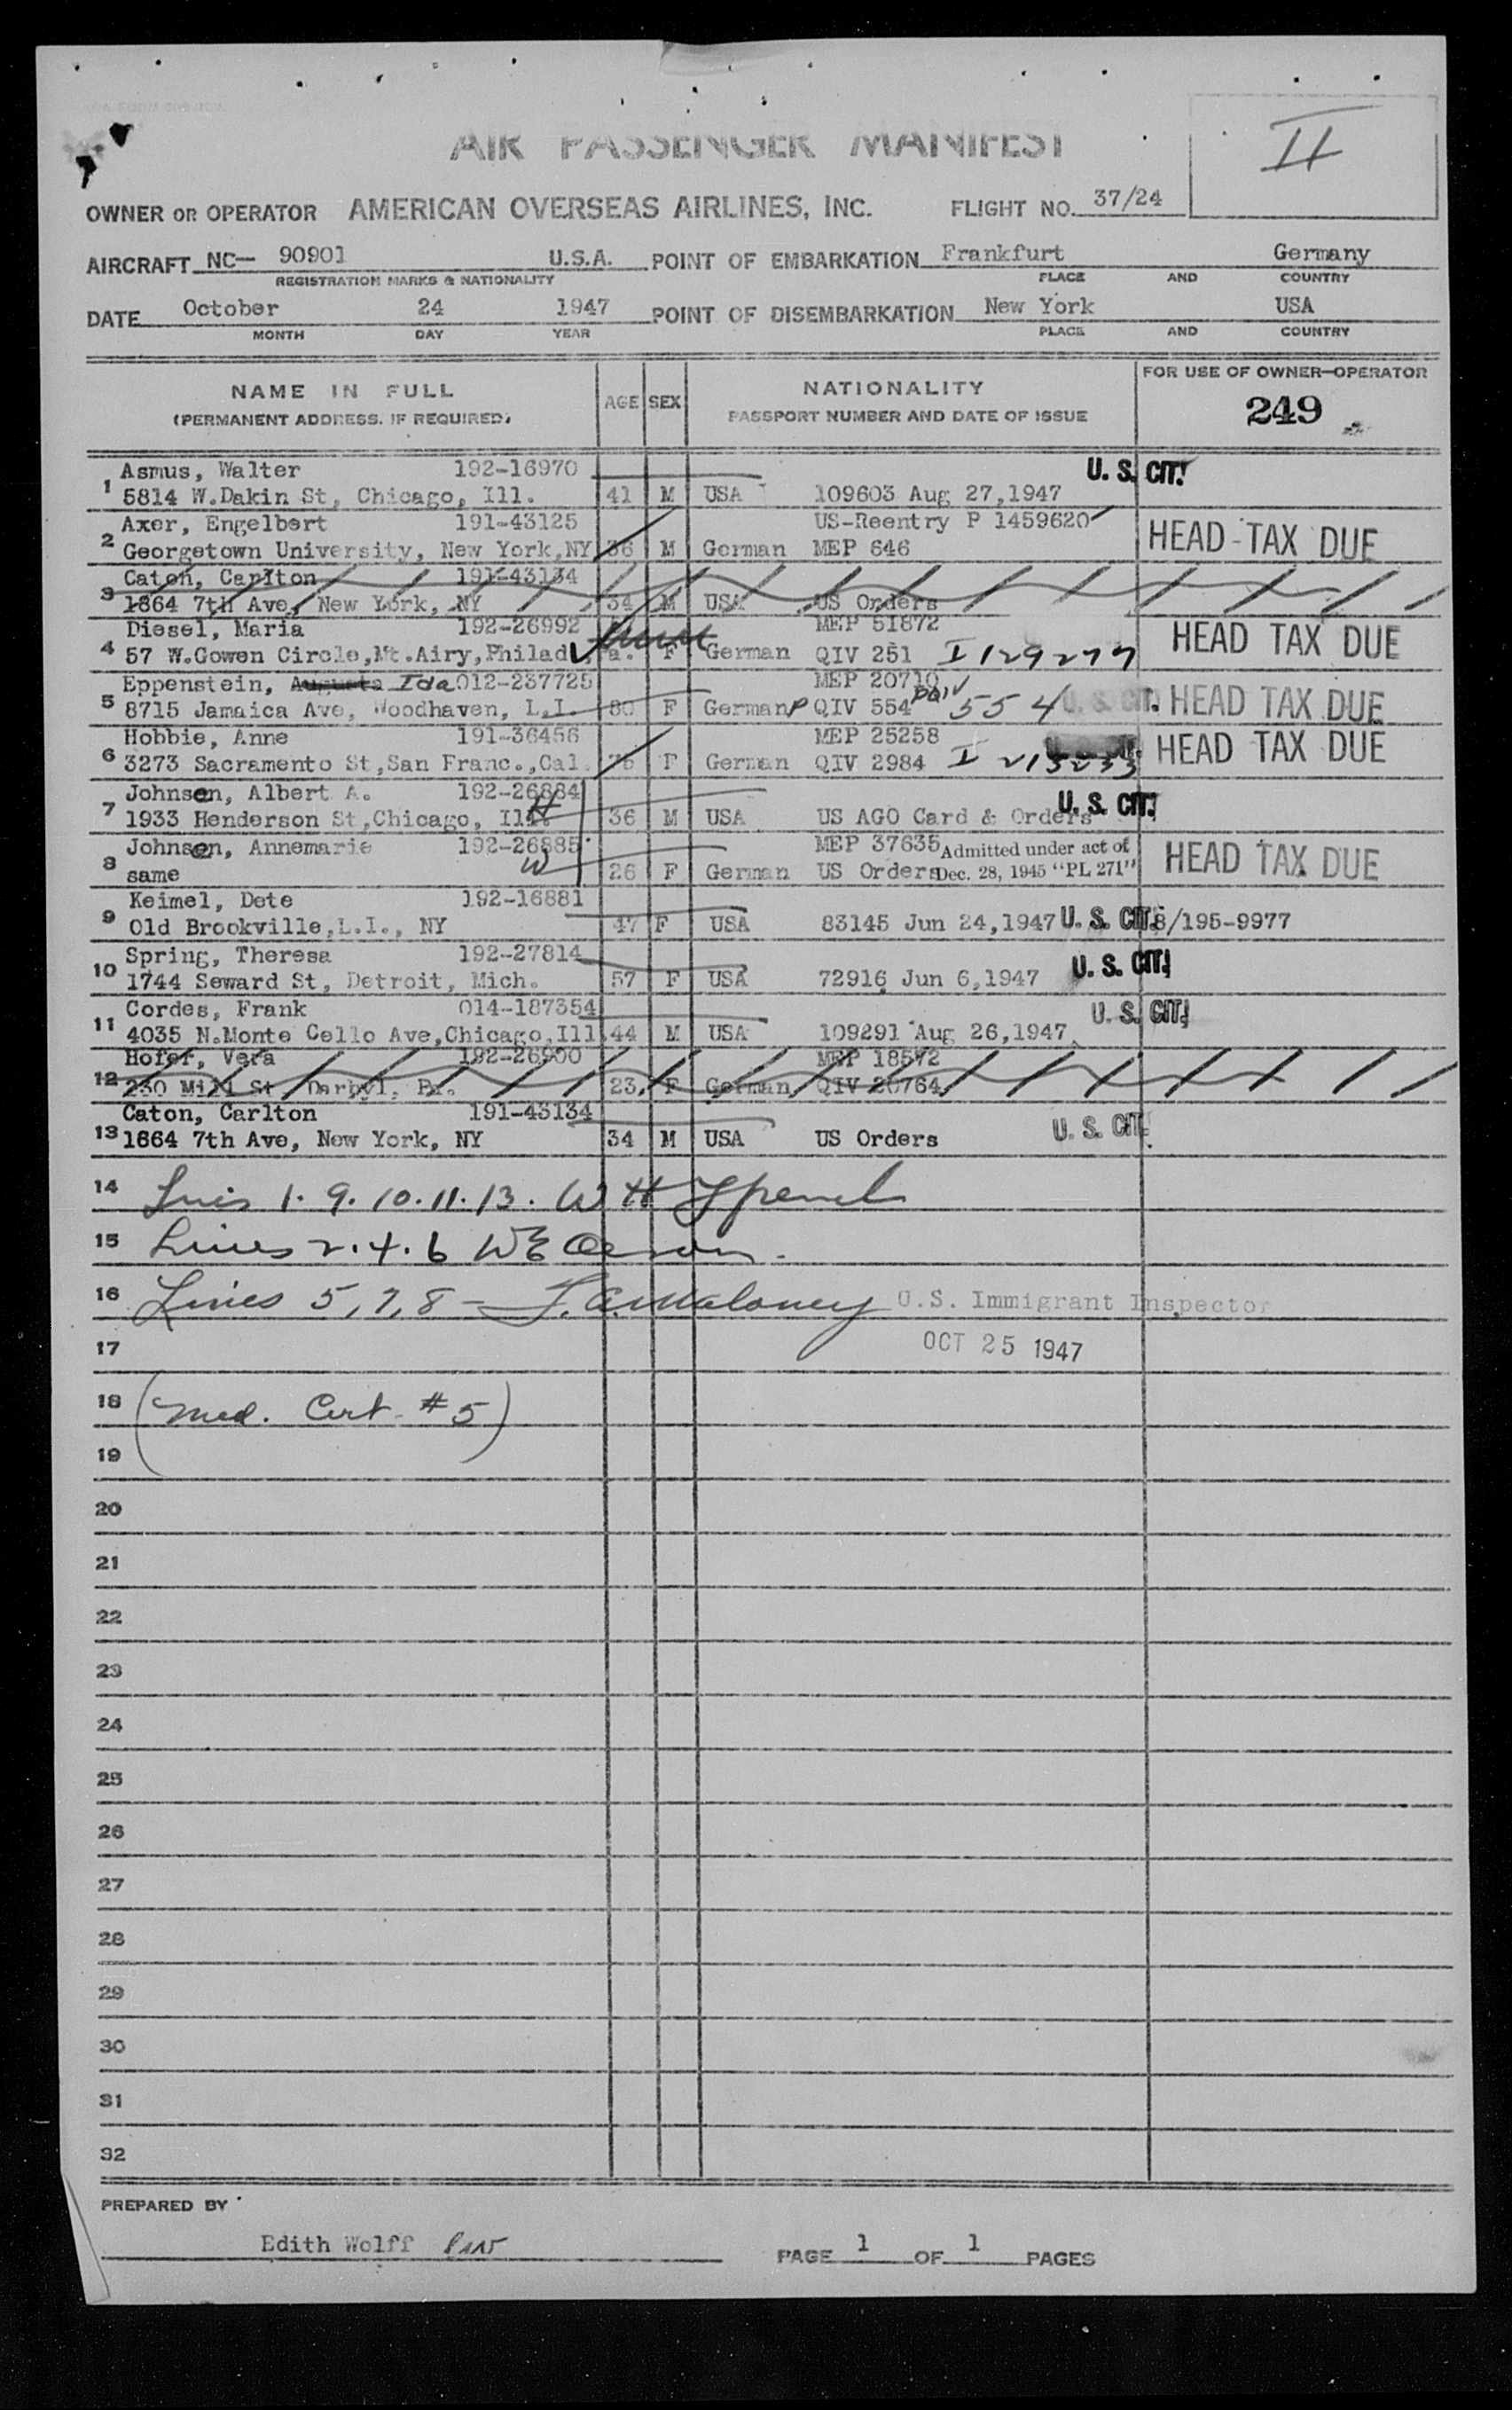 II
AIR PASSENGER MANIFEST
OWNER OR OPERATOR AMERICAN OVERSEAS AIRLINES, INC. FLIGHT NO. 37/24
AIRCRAFT NC— 90901 U.S.A. POINT OF EMBARKATION Frankfurt Germany
REGISTRATION MARKS & NATIONALITY PLACE AND COUNTRY
DATE October 24 1947 POINT OF DISEMBARKATION New York USA
MONTH DAY YEAR PLACE AND COUNTRY
NAME IN FULL AGE SEX NATIONALITY FOR USE OF OWNER-OPERATOR
(PERMANENT ADDRESS, IF REQUIRED) PASSPORT NUMBER AND DATE OF ISSUE 249
Asmus, Walter 192-16970 U. S. CIT.
1 5814 W.Dakin St, Chicago, Ill. 41 M USA 109603 Aug 27,1947
Axer, Engelbert 191-43125 US-Reentry P 1459620
2 Georgetown University, New York,NY 36 M German MEP 646 HEAD TAX DUE
Caton, Carlton 191-43134
3 1864 7th Ave, New York, NY 34 M USA US Orders
Diesel, Maria 192-26992 MEP 51872
4 57 W.Gowen Circle,Mt.Airy,Philad a. F German QIV 251 I 129277 HEAD TAX DUE
Eppenstein, Augusta Ida 012-237725 MEP 20710
5 8715 Jamaica Ave, Woodhaven, L.I. 80 F German P QIV 554 554 U. S. CIT. HEAD TAX DUE
Hobbie, Anne 191-36456 MEP 25258
6 3273 Sacramento St,San Franc.,Cal. 75 F German QIV 2984 I 213233 HEAD TAX DUE
Johnsen, Albert A. 192-26884
7 1933 Henderson St,Chicago, Ill. H 36 M USA US AGO Card & Orders U. S. CIT.
Johnsen, Annemarie 192-26885 MEP 37635 Admitted under act of
8 same W 26 F German US Orders Dec. 28, 1945 "PL 271" HEAD TAX DUE
Keimel, Dete 192-16881
9 Old Brookville,L.I., NY 47 F USA 83145 Jun 24,1947 U. S. CIT. 8/195-9977
Spring, Theresa 192-27814
10 1744 Seward St, Detroit, Mich. 57 F USA 72916 Jun 6,1947 U. S. CIT.
Cordes, Frank 014-187354 U. S. CIT.
11 4035 N.Monte Cello Ave,Chicago,Ill 44 M USA 109291 Aug 26,1947
Hofer, Vera 192-26900 MEP 18572
12 230 Mill St, Darbyl, Pa. 23 F German QIV 20764
Caton, Carlton 191-43134
13 1864 7th Ave, New York, NY 34 M USA US Orders U. S. CIT.
14 Lines 1. 9. 10. 11. 13. W H
15 Lines 2. 4. 6 WE
16 Lines 5, 7, 8 — J. A. Maloney U.S. Immigrant Inspector
17 OCT 25 1947
18 (Med. Cert. #5)
19
20
21
22
23
24
25
26
27
28
29
30
31
32
PREPARED BY
Edith Wolff PAGE 1 OF 1 PAGES